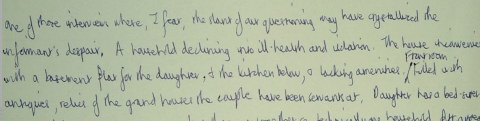 one of those interviews where, I fear, the slant of our questioning may have crystallized the
informant's despair. A household declining into ill-health and isolation. The house inconvenient
with a basement flat for the daughter, & the kitchen below, & lacking amenities, Front room filled with
antiques, relics of the grand houses the couple have been servants at. Daughter has a bed-
household